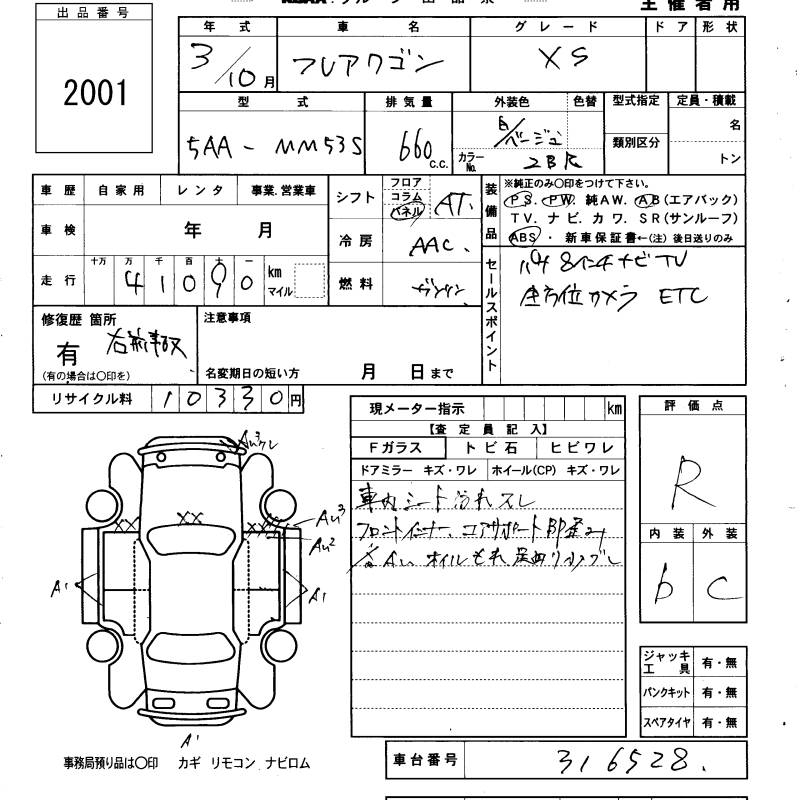 出品番号
2001
主催者用
年式 車名 グレード ドア 形状
3/10月 フレアワゴン XS
型式 排気量 外装色 色替 型式指定 定員・積載
5AA-MM53S 660c.c. 白/ベージュ 類別区分 名
カラーNo. 2BR トン
車歴 自家用 レンタ 事業.営業車
シフト フロア コラム パネル AT.
装備品 ※純正のみ〇印をつけて下さい。
PS. PW. 純AW. AB(エアバック)
TV. ナビ. カワ. SR(サンルーフ)
ABS・ 新車保証書←(注) 後日送りのみ
車検 年 月
冷房 AAC.
走行 十万 万 千 百 十 一 km マイル
41090
燃料 ガソリン
セールスポイント
8インチナビTV
全方位カメラ ETC
修復歴 箇所
有 右前事故
(有の場合は〇印を)
注意事項
名変期日の短い方 月 日まで
リサイクル料 10330円
現メーター指示 km
【査定員記入】
Fガラス トビ石 ヒビワレ
ドアミラー キズ・ワレ ホイール(CP) キズ・ワレ
車内シート汚れスレ
フロントインナー、コアサポート部歪み
オイルもれ
評価点
R
内装 外装
b C
Au³ワレ
XX XX XX
Au³
Au²
A¹ A¹
A¹
ジャッキ工具 有・無
パンクキット 有・無
スペアタイヤ 有・無
事務局預り品は〇印 カギ リモコン ナビロム
車台番号 316528.